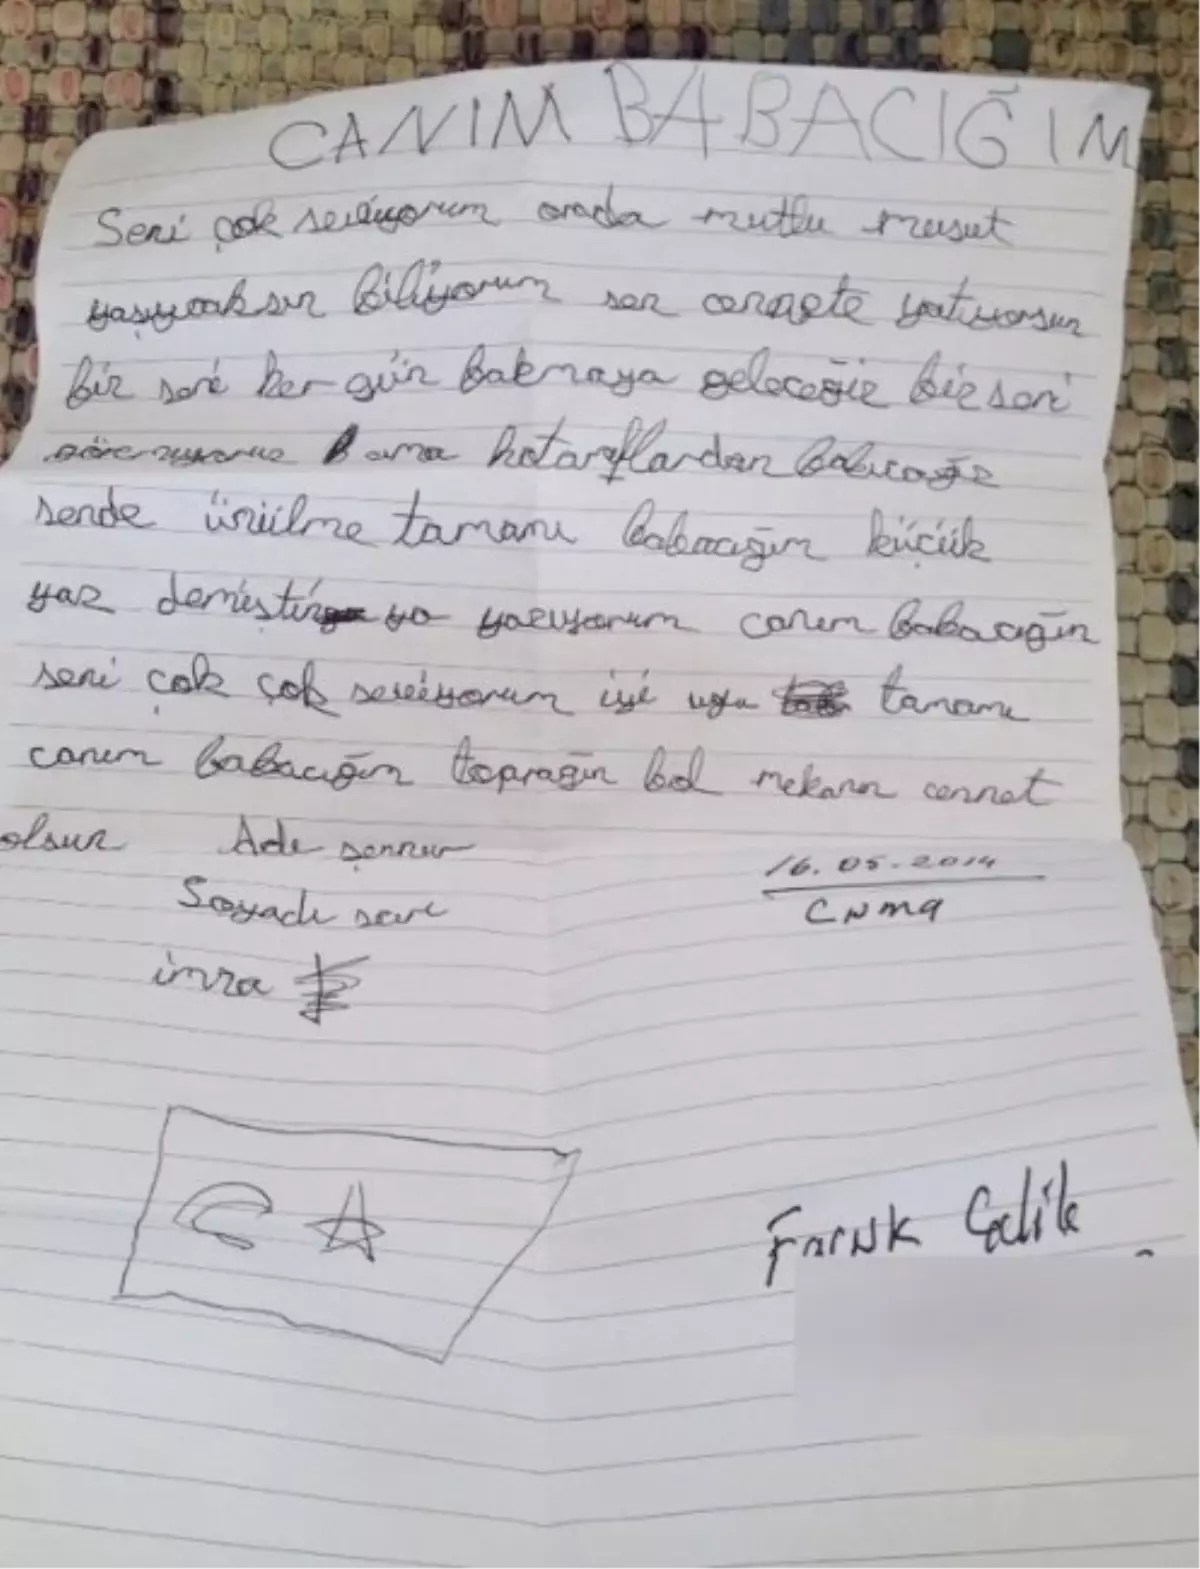 CANIM BABACIĞIM
Seni çok seviyorum orada mutlu mesut
yaşıycaksın biliyorum sen cennete yatıyorsun
biz seni her gün bakmaya geleceğiz biz seni
göremiyoruz ama hotaraflardan bakıcağız
sende üzülme tamamı babacığım küçük
yaz demiştin ya yazıyorum canım babacığım
seni çok çok seviyorum iyi uyu tamamı
canım babacığım toprağın bol mekanın cennet
olsun Adı şennur
16.05.2014
Soyadı
CNMG
imza
Faruk Çelik